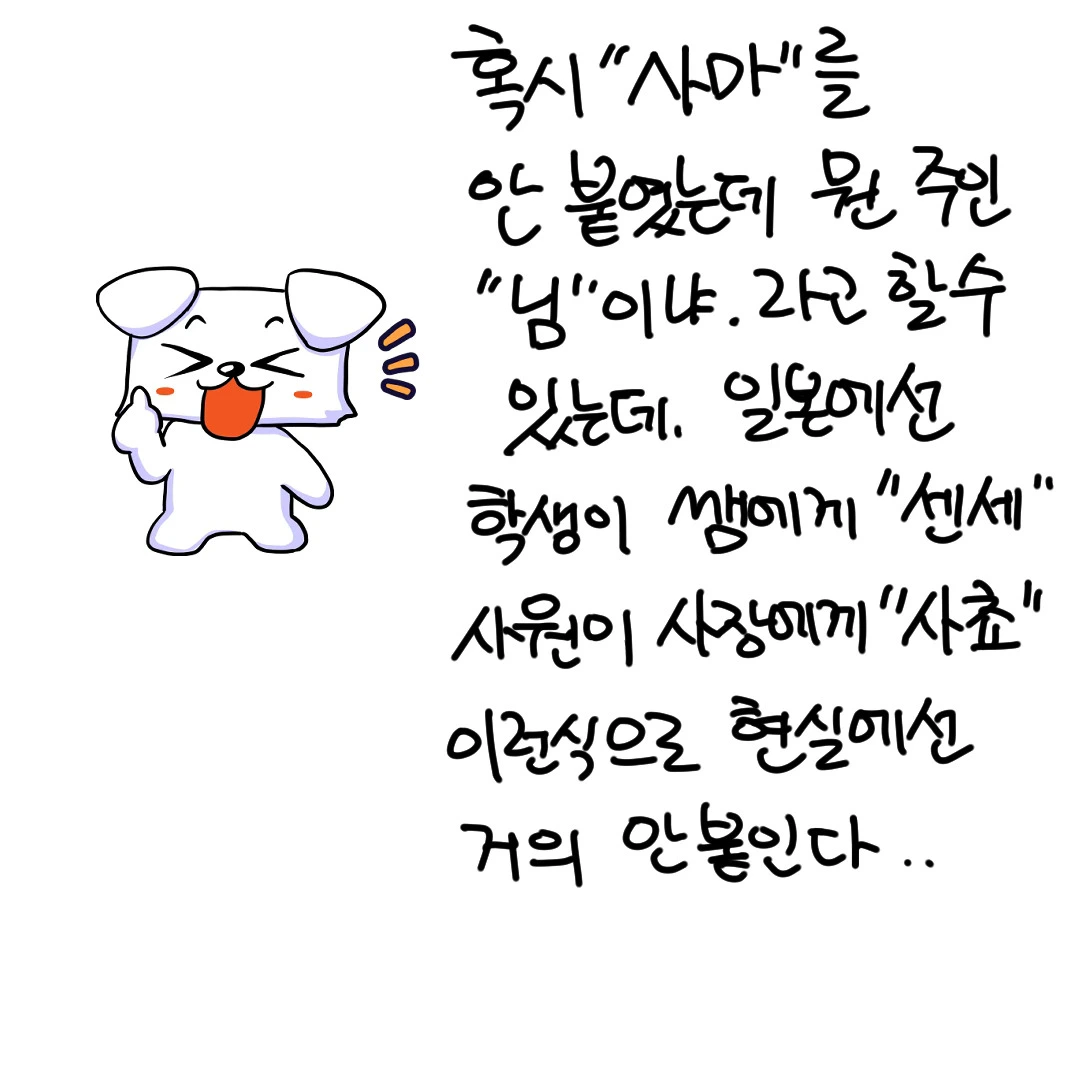 혹시 "사마"를
안 붙였는데 뭔 주인
"님"이냐. 라고 할수
있는데. 일본에선
학생이 쌤에게 "센세"
사원이 사장에게 "사쵸"
이런식으로 현실에선
거의 안붙인다..